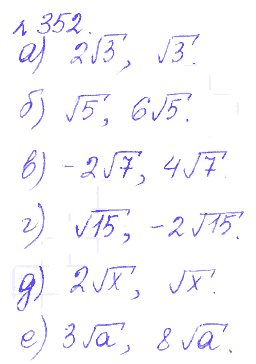 № 352.
а) 2√3, √3.
б) √5, 6√5.
в) -2√7, 4√7.
г) √15, -2√15.
д) 2√x, √x.
е) 3√a, 8√a.